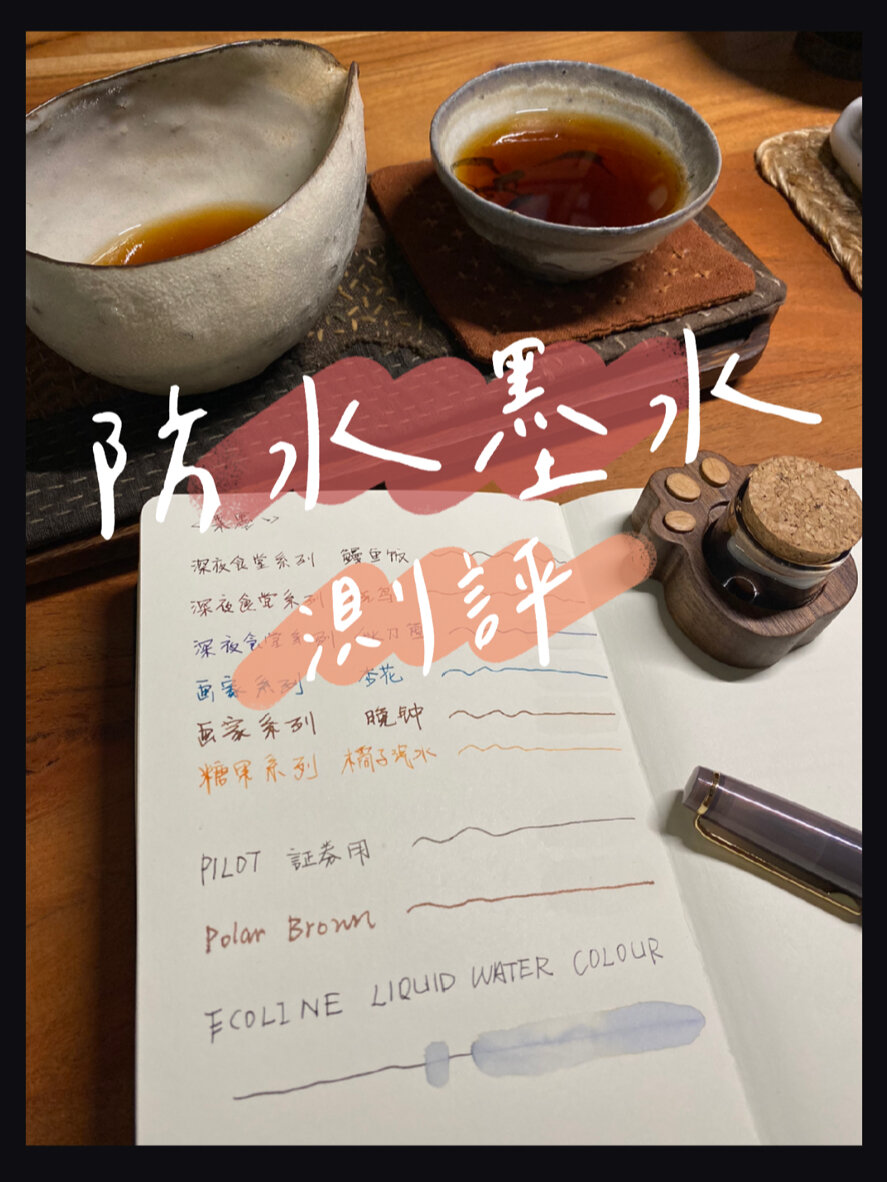 防水墨水
測評
深夜食堂系列 鰻鱼饭
深夜食堂系列
深夜食堂系列
画家系列 杏花
画家系列 晚钟
糖果系列 橘子汽水
PILOT 証券用
Polar Brown
ECOLINE LIQUID WATER COLOUR